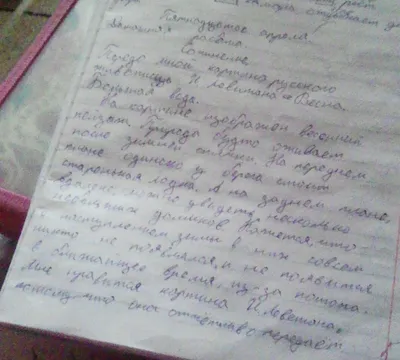 Пятнадцатое апреля
Домашняя работа.
Сочинение
Передо мной картина русского
живописца И. Левитана "Весна.
Большая вода.
На картине изображён весенний
пейзаж. Природа будто оживает
после зимней спячки. На переднем
плане одиноко у берега стоит
старенькая лодка. А на заднем плане,
вдалеке, можно увидеть несколько
домиков. Кажется, что
с наступлением зимы в них совсем
никто не появлялся и не появится
в ближайшее время из-за потопа.
Мне нравится картина И. Левитана,
потому что она отчётливо передаёт